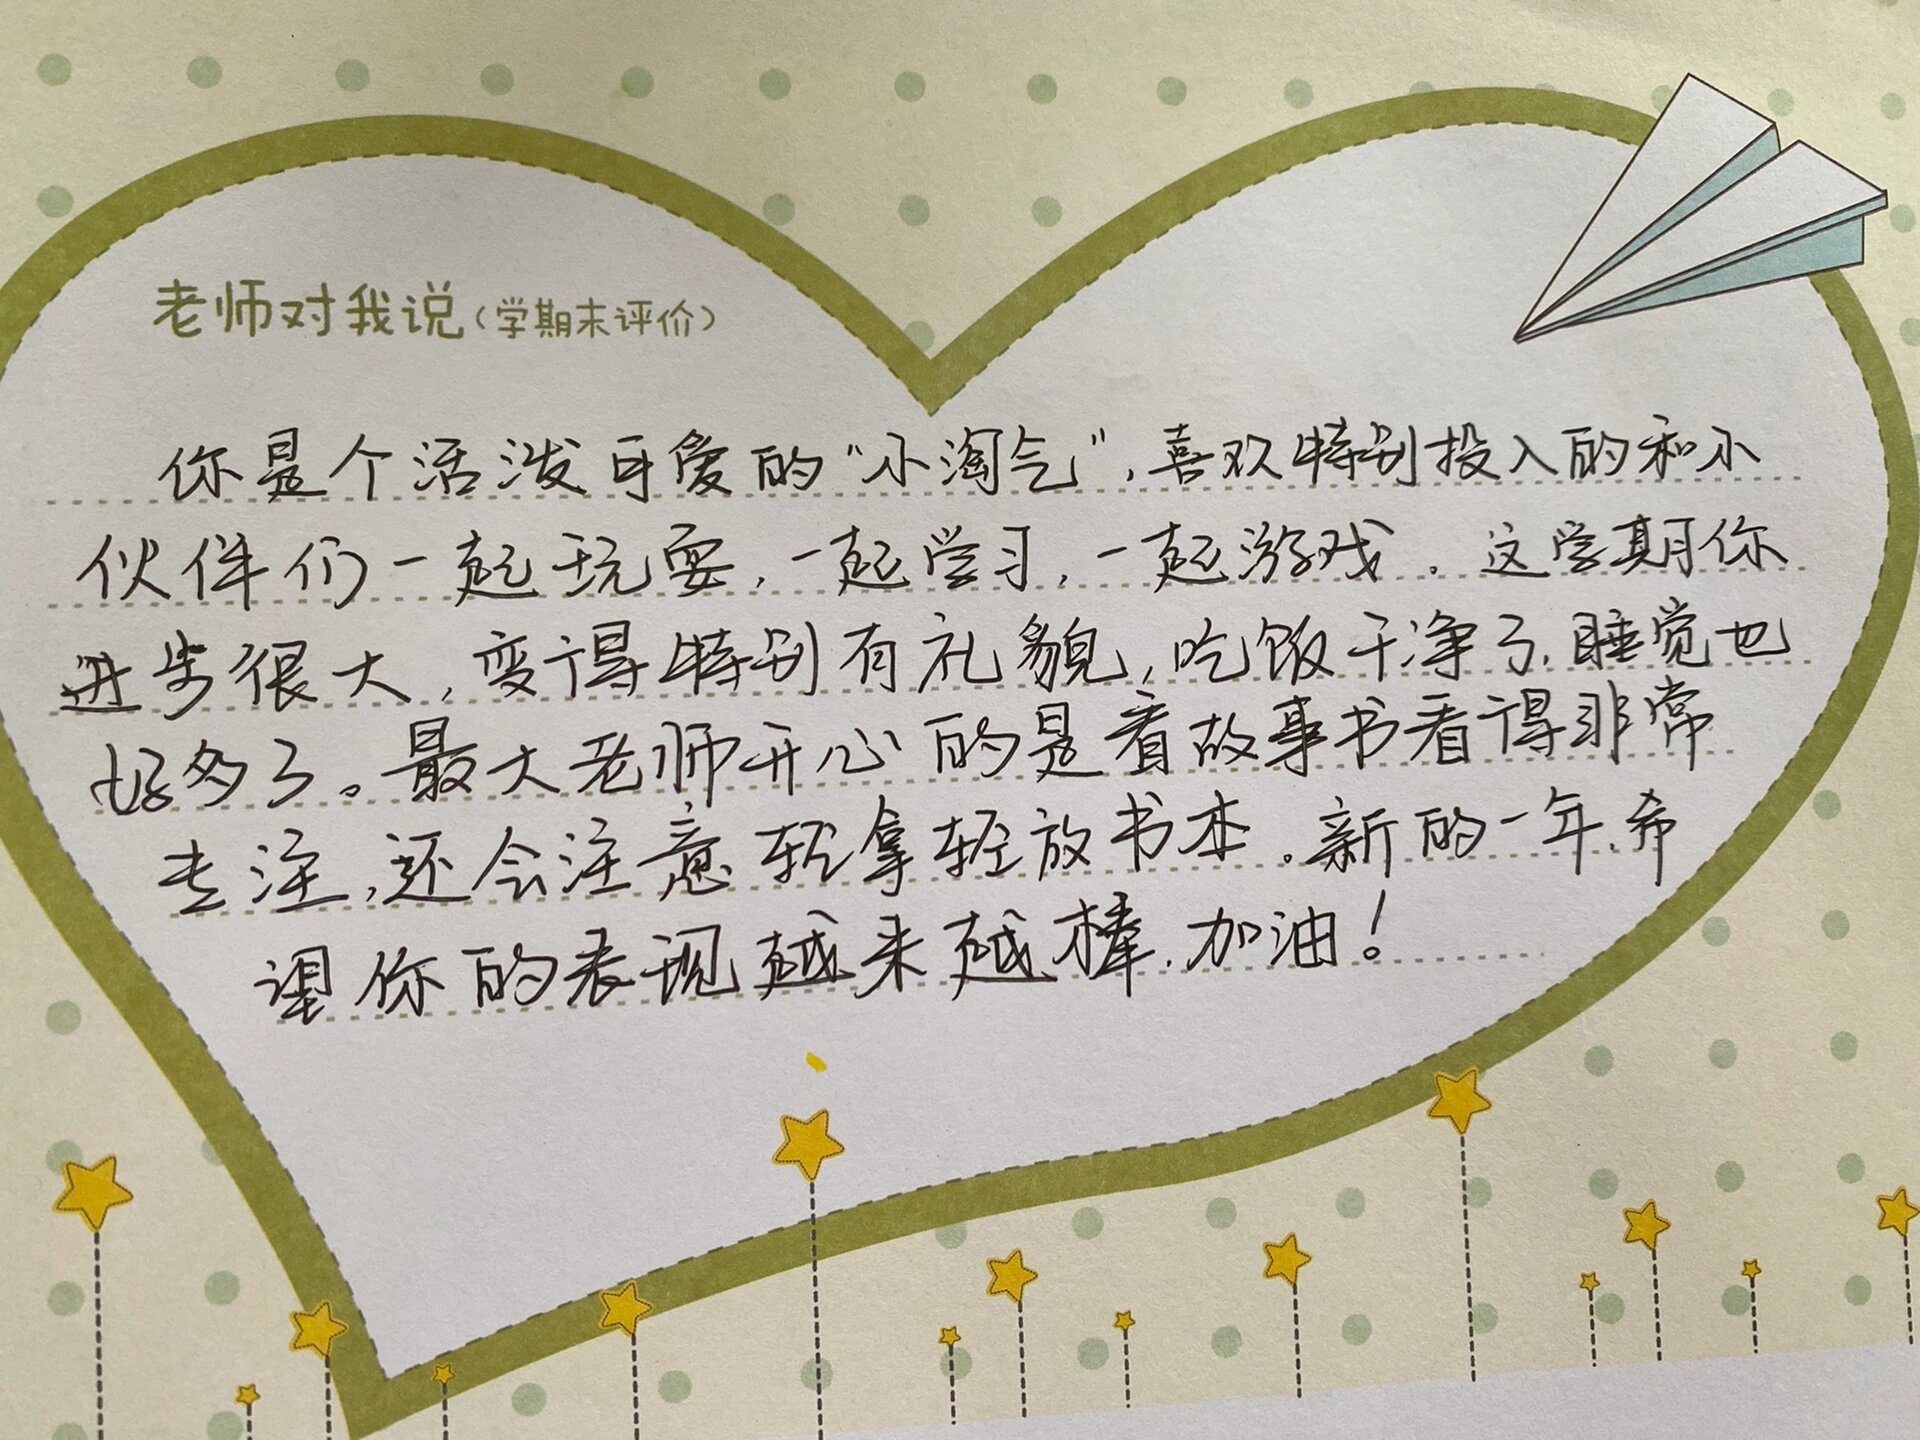 老师对我说(学期末评价)
你是个活泼可爱的“小淘气”，喜欢特别投入的和小
伙伴们一起玩耍，一起学习，一起游戏。这学期你
进步很大，变得特别有礼貌，吃饭干净了，睡觉也
好多了。最大老师开心的是看故事书看得非常
专注，还会注意轻拿轻放书本。新的一年，希
望你的表现越来越棒，加油！